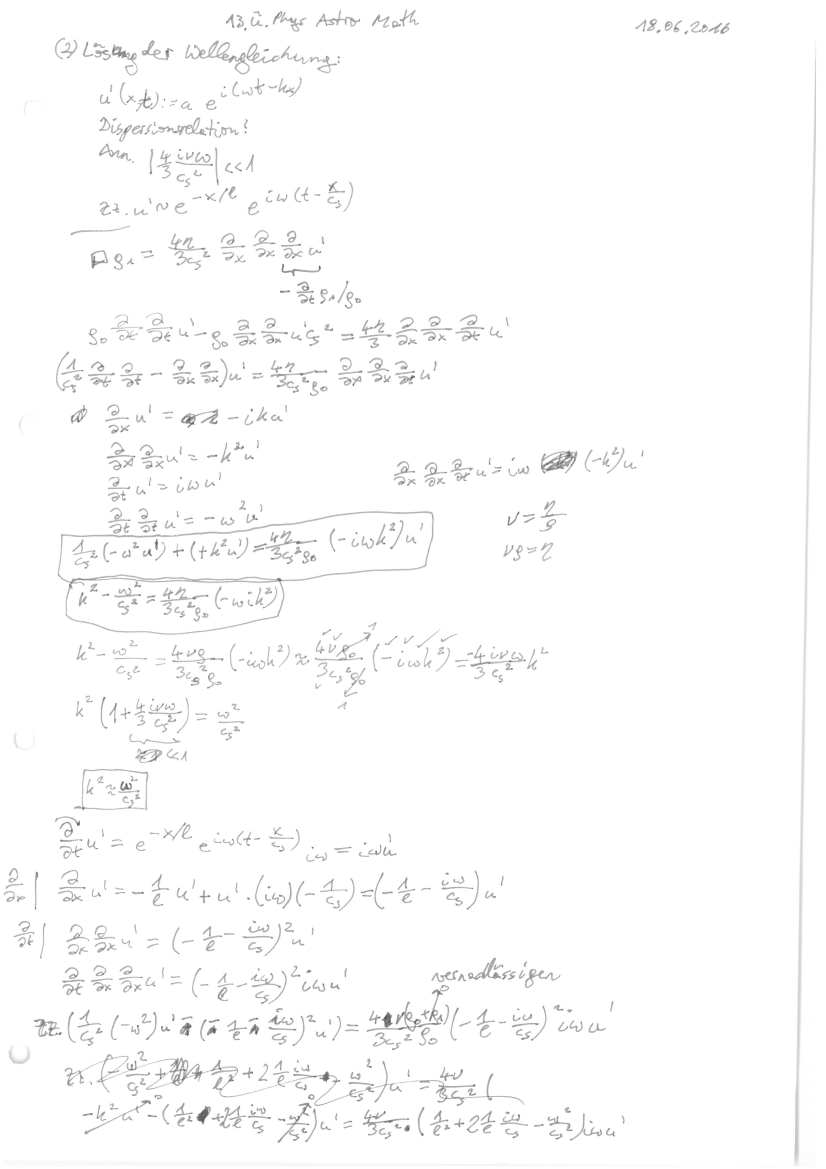 13. Ü. Phys Astro Math
18.06.2016
(2) Lösung der Wellengleichung:
u'(x,t) := a e^{i(ωt-kx)}
Dispersionsrelation?
Ann. |4/3 iνω/c_s²| << 1
zz. u' ~ e^{-x/l} e^{iω(t - x/c_s)}
□ρ₁ = 4η/3c_s² ∂/∂x ∂/∂x ∂/∂x u'
-∂/∂t ρ₁/ρ₀
ρ₀ ∂/∂t ∂/∂t u' - ρ₀ ∂/∂x ∂/∂x u' c_s² = 4η/3 ∂/∂x ∂/∂x ∂/∂t u'
(1/c_s² ∂/∂t ∂/∂t - ∂/∂x ∂/∂x) u' = 4η/3c_s²ρ₀ ∂/∂x ∂/∂x ∂/∂t u'
∂/∂x u' = -iku'
∂/∂x ∂/∂x u' = -k²u'
∂/∂x ∂/∂x ∂/∂t u' = iω (-k²)u'
∂/∂t u' = iωu'
∂/∂t ∂/∂t u' = -ω²u'
ν = η/ρ
νρ = η
1/c_s² (-ω²u') + (+k²u') = 4η/3c_s²ρ₀ (-iωk²) u'
k² - ω²/c_s² = 4η/3c_s²ρ₀ (-ωik²)
k² - ω²/c_s² = 4νρ/3c_s²ρ₀ (-iωk²) ≈ 4νρ₀/3c_s²ρ₀ (-iωk²) = -4iνω/3c_s² k²
k² (1 + 4/3 iνω/c_s²) = ω²/c_s²
<<1
k² ≈ ω²/c_s²
∂/∂t u' = e^{-x/l} e^{iω(t - x/c_s)} iω = iωu'
∂/∂x | ∂/∂x u' = -1/l u' + u' · (iω)(-1/c_s) = (-1/l - iω/c_s) u'
∂/∂t | ∂/∂x ∂/∂x u' = (-1/l - iω/c_s)² u'
∂/∂t ∂/∂x ∂/∂x u' = (-1/l - iω/c_s)² iωu'
vernachlässigen
zz. (1/c_s² (-ω²)u' - (-1/l - iω/c_s)² u') = 4ν(ρ₀+ρ₁)/3c_s²ρ₀ (-1/l - iω/c_s)² iωu'
-k²u' - (1/l² + 2 1/l iω/c_s - ω²/c_s²) u' = 4ν/3c_s² · (1/l² + 2 1/l iω/c_s - ω²/c_s²) iωu'